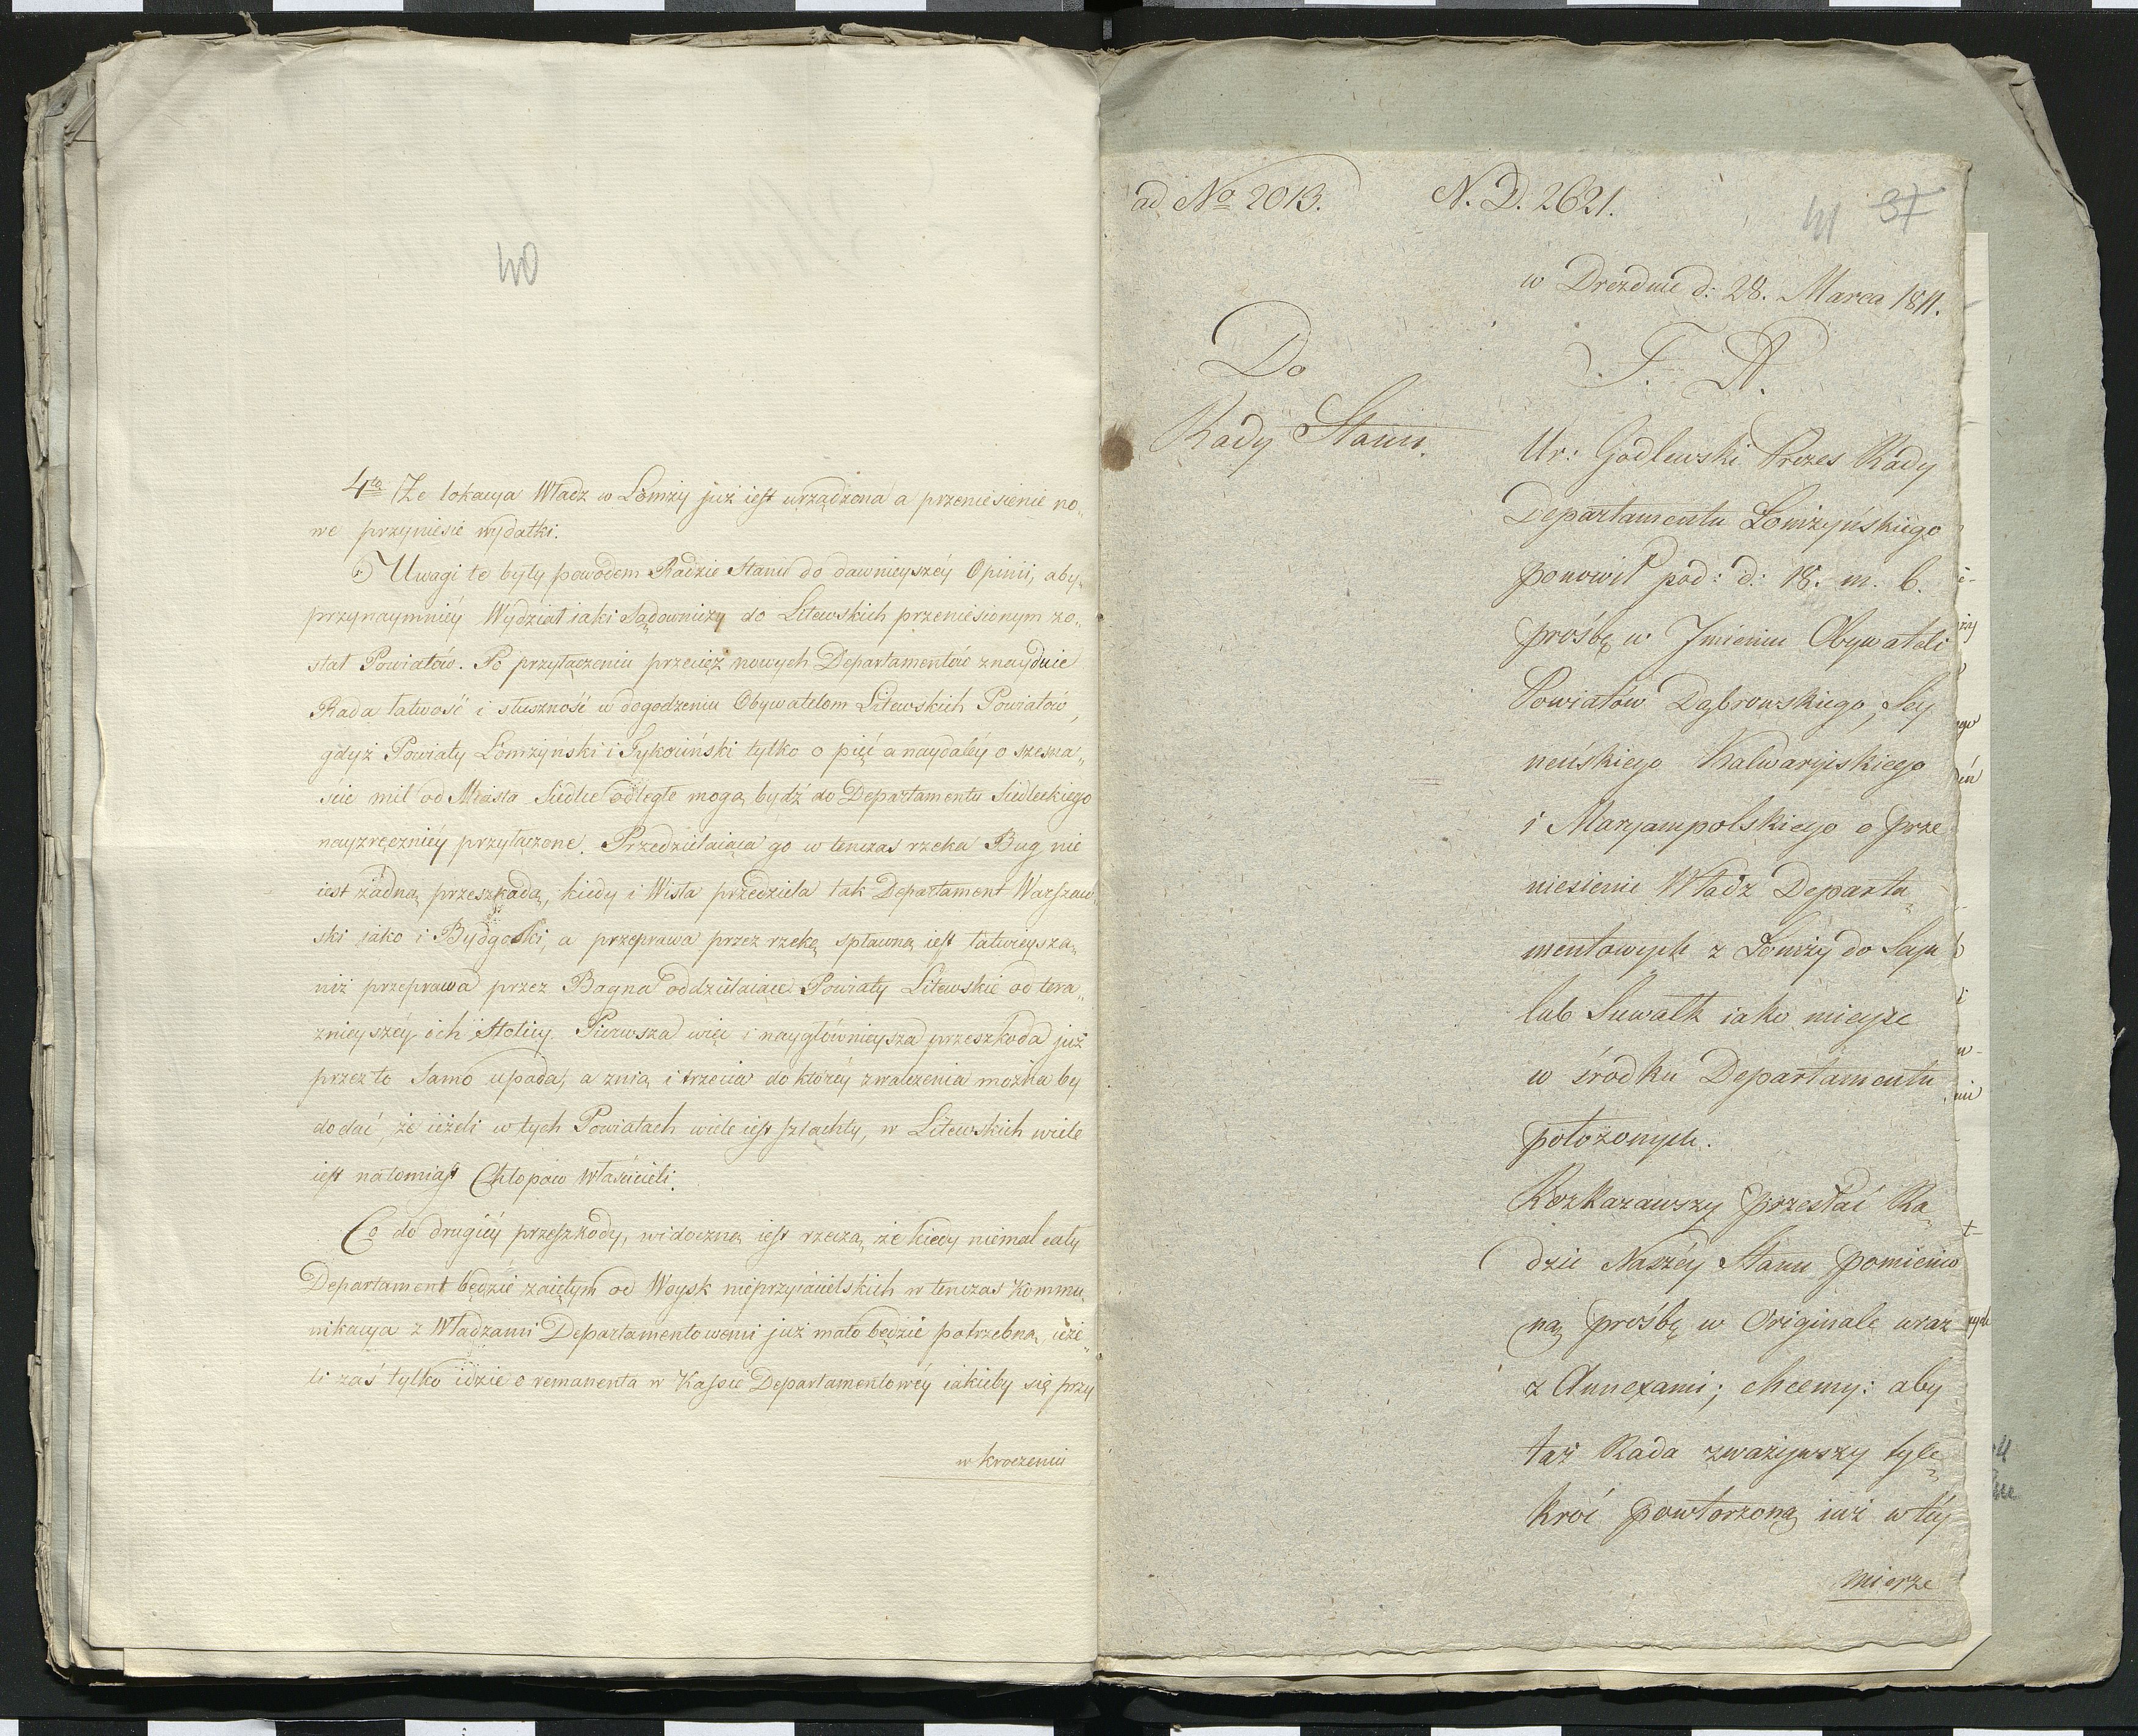 40
4to Że lokacya Władz w Łomży już iest urządzona a przeniesienie no„
we przyniesie wydatki.
Uwagi te były powodem Radzie Stanu do dawnieyszéy Opinii, aby
przynaymniéy Wydział iaki Sądowniczy do Litewskich przeniesionym zo„
stał Powiatów. Po przyłączeniu przecięż nowych Departamentów znayduie
Rada łatwość i słuszność w dogodzeniu Obywatelom Litewskich Powiatów,
gdyż Powiaty Łomżyński i Tykociński tylko o pięć a naydaléy o szesna„
ście mil od Miasta Siedlec odległe mogą bydź do Departamentu Siedleckiego
nayzręczniéy przyłączone. Przedzielaiąca go w tenczas rzeka Bug nie
iest żadną przeszkodą, kiedy i Wisła przedziela tak Departament Warszaw„
ski iako i Bydgoski, a przeprawa przez rzekę spławną iest łatwieysza„
niż przeprawa przez Bagna oddzielaiące Powiaty Litewskie od tera„
znieyszéy ich Stolicy. Pierwsza więc i naygłównieysza przeszkoda już
przez to samo upada, a z nią i trzecia do któréy zwalczenia możnaby
dodać, że ieżeli w tych Powiatach wiele iest szlachty, w Litewskich wiele
iest natomiast Chłopów Właścicieli.
Co do drugiéy przeszkody, widoczną iest rzeczą, że kiedy niemal cały
Departament będzie zaiętym od Woysk nieprzyiacielskich w tenczas kommu„
nikacya z Władzami Departamentowemi już mało będzie potrzebną, ieże„
li zaś tylko idzie o remanenta w Kassie Departamentowéy iakieby się przy
w kroczeniu
ad No 2013. N. D. 2621.
41 37
w Dreźdnie d: 28. Marca 1811.
F. A.
Do
Rady Stanu.
Ur: Godlewski Prezes Rady
Departamentu Łomżyńskiego
ponowił pod: d: 18. m. b.
prośbę w Jmieniu Obywateli
Powiatów Dąbrowskiego, Sey
neńskiego Kalwaryiskiego
i Maryampolskiego o prze
niesienie Władz Departa„
mentowych z Łomży do Seyn
lub Suwałk iako mieysc
w środku Departamentu
położonych.
Rozkazawszy przesłać Ra„
dzie Naszéy Stanu pomienio
ną prośbę w Originale wraz
z Annexami; chcemy: aby
taż Rada zważywszy tyle„
kroć powtorzoną iuż w téy
mierze